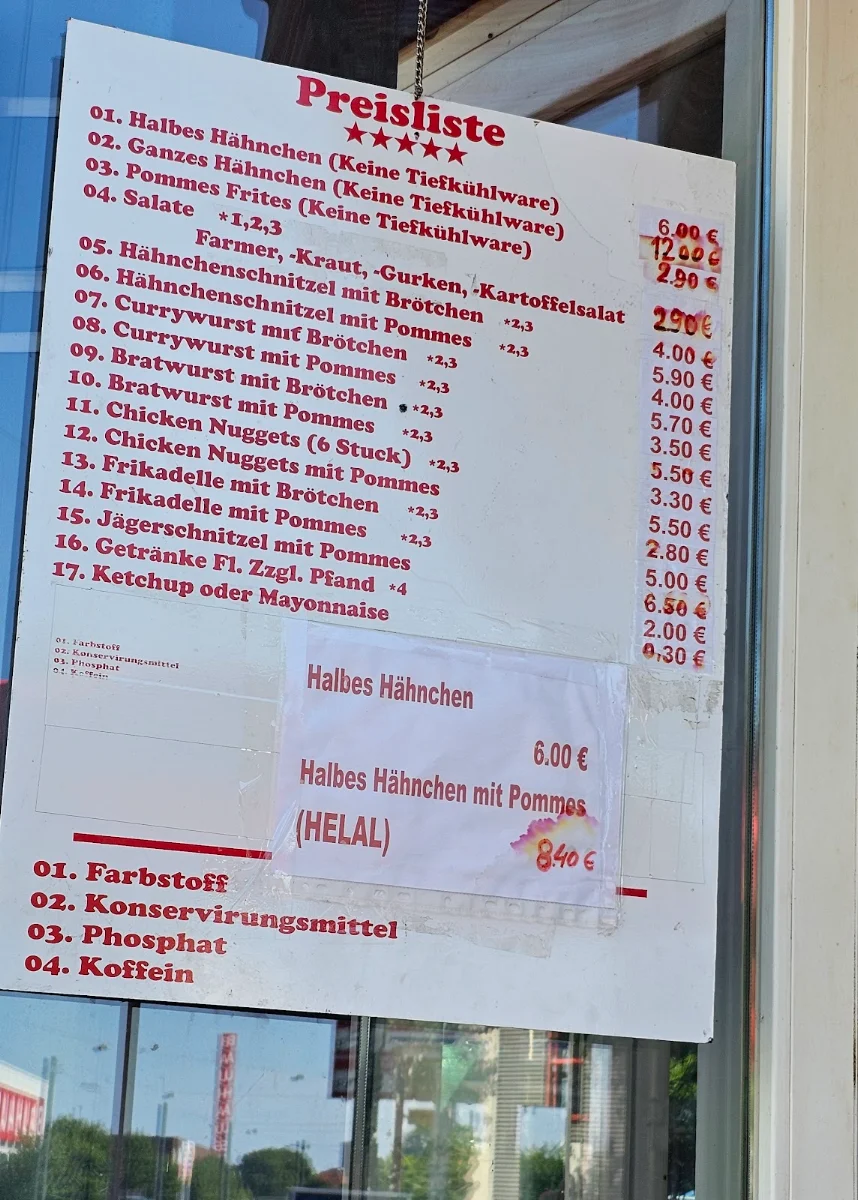 Preisliste
01. Halbes Hähnchen (Keine Tiefkühlware) 6.00 €
02. Ganzes Hähnchen (Keine Tiefkühlware) 12.00 €
03. Pommes Frites (Keine Tiefkühlware) 2.90 €
04. Salate *1,2,3
Farmer, -Kraut, -Gurken, -Kartoffelsalat 2.90 €
05. Hähnchenschnitzel mit Brötchen *2,3 4.00 €
06. Hähnchenschnitzel mit Pommes *2,3 5.90 €
07. Currywurst mit Brötchen *2,3 4.00 €
08. Currywurst mit Pommes *2,3 5.70 €
09. Bratwurst mit Brötchen *2,3 3.50 €
10. Bratwurst mit Pommes *2,3 5.50 €
11. Chicken Nuggets (6 Stuck) *2,3 3.30 €
12. Chicken Nuggets mit Pommes 5.50 €
13. Frikadelle mit Brötchen *2,3 2.80 €
14. Frikadelle mit Pommes *2,3 5.00 €
15. Jägerschnitzel mit Pommes 6.50 €
16. Getränke Fl. Zzgl. Pfand *4 2.00 €
17. Ketchup oder Mayonnaise 0,30 €
01. Farbstoff
02. Konservirungsmittel
03. Phosphat
04. Koffein
Halbes Hähnchen
6.00 €
Halbes Hähnchen mit Pommes
(HELAL) 8.40 €
01. Farbstoff
02. Konservirungsmittel
03. Phosphat
04. Koffein